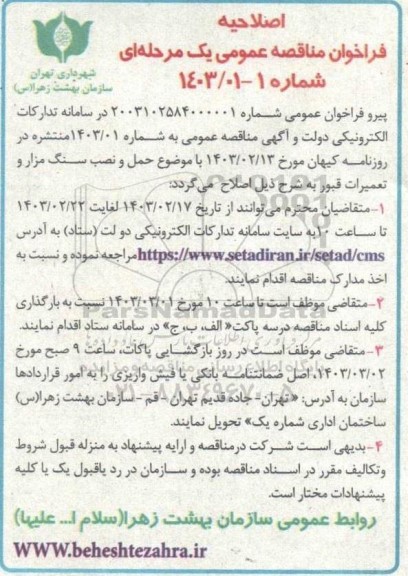 اصلاحیه
فراخوان مناقصه عمومی یک مرحله‌ای
شماره ۱-۱۴۰۳/۰۱
شهرداری تهران
سازمان بهشت زهرا(س)
پیرو فراخوان عمومی شماره ۲۰۰۳۱۰۲۵۸۴۰۰۰۰۰۱ در سامانه تدارکات
الکترونیکی دولت و آگهی مناقصه عمومی به شماره ۱۴۰۳/۰۱منتشره در
روزنامه کیهان مورخ ۱۴۰۳/۰۲/۱۳ با موضوع حمل و نصب سنگ مزار و
تعمیرات قبور به شرح ذیل اصلاح می‌گردد:
۱-متقاضیان محترم می‌توانند از تاریخ ۱۴۰۳/۰۲/۱۷ لغایت ۱۴۰۳/۰۲/۲۲
تا ساعت ۱۰به سایت سامانه تدارکات الکترونیکی دو لت (ستاد) به آدرس
https://www.setadiran.ir/setad/cmsمراجعه نموده و نسبت به
اخذ مدارک مناقصه اقدام نمایند.
۲-متقاضی موظف است تا ساعت ۱۰ مورخ ۱۴۰۳/۰۳/۰۱ نسبت به بارگذاری
کلیه اسناد مناقصه درسه پاکت« الف، ب، ج» در سامانه ستاد اقدام نمایند.
۳-متقاضی موظف است در روز بازگشایی پاکات، ساعت ۹ صبح مورخ
۱۴۰۳/۰۳/۰۲، اصل ضمانتنامه بانکی یا فیش واریزی را به امور قراردادها
سازمان به آدرس: «تهران- جاده قدیم تهران - قم- سازمان بهشت زهرا(س)
ساختمان اداری شماره یک» تحویل نمایند.
۴-بدیهی است شرکت درمناقصه و ارایه پیشنهاد به منزله قبول شروط
وتکالیف مقرر در اسناد مناقصه بوده و سازمان در رد یاقبول یک یا کلیه
پیشنهادات مختار است.
روابط عمومی سازمان بهشت زهرا(سلام ا... علیها)
WWW.beheshtezahra.ir
ParsNamadData